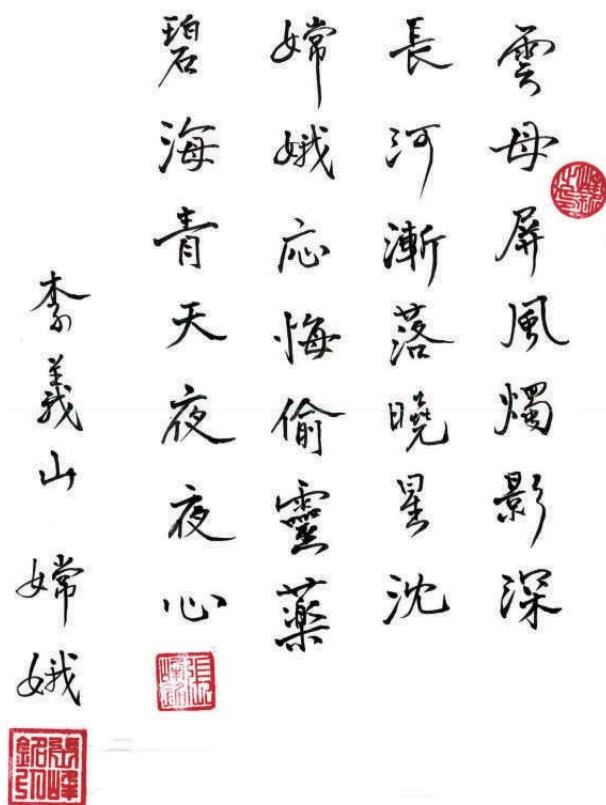 雲母屏風燭影深
長河漸落曉星沈
嫦娥応悔偷靈薬
碧海青天夜夜心
李義山 嫦娥